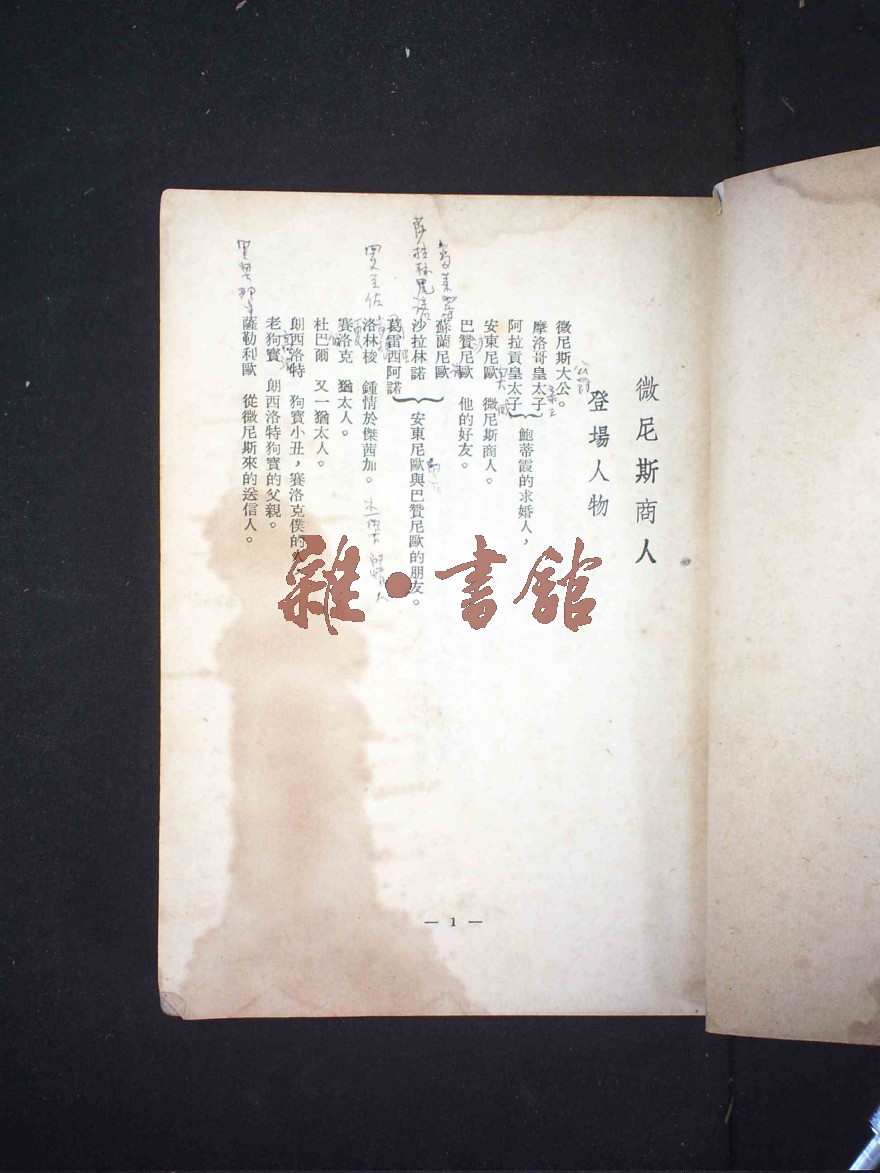 微尼斯商人
登場人物
微尼斯大公。
摩洛哥皇太子
阿拉貢皇太子
鮑蒂霞的求婚人，
安東尼歐 微尼斯商人。
巴贊尼歐 他的好友。
蘇蘭尼歐
沙拉林諾
葛雷西阿諾
安東尼歐與巴贊尼歐的朋友。
洛林梭 鍾情於傑茜加。
賽洛克 猶太人。
杜巴爾 又一猶太人。
朗西洛特 狗寶小丑，賽洛克僕的
老狗寶 朗西洛特狗寶的父親。
薩勒利歐 從微尼斯來的送信人。
— 1 —
雜·書館